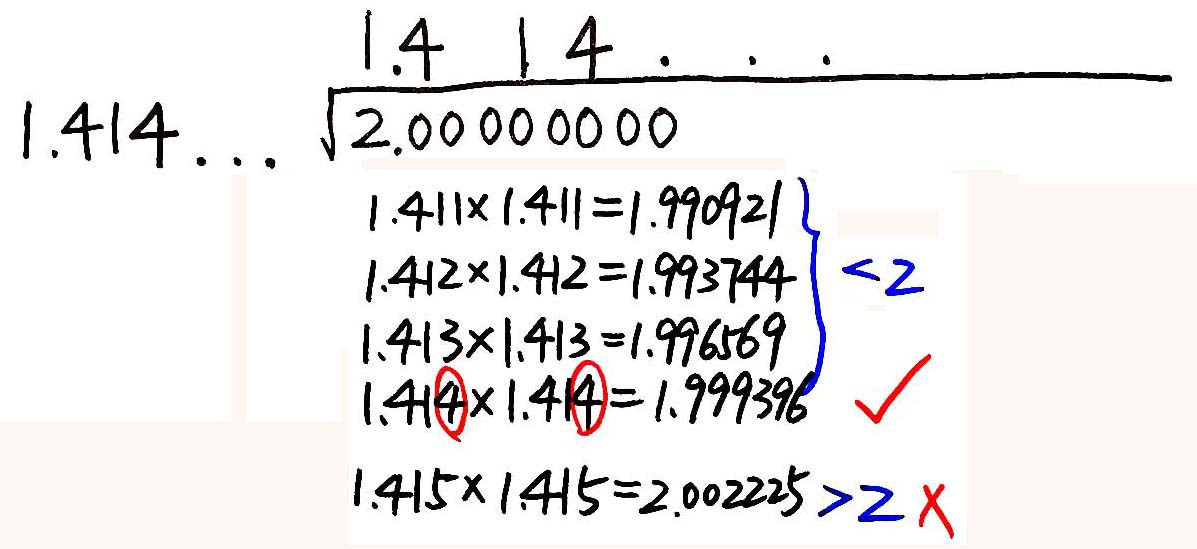 1.4 1 4 . . .
1.414... √2.00 00 00 00
1.411×1.411=1.990921
1.412×1.412=1.993744 <2
1.413×1.413=1.996569
1.414×1.414=1.999396 ✓
1.415×1.415=2.002225 >2 ×